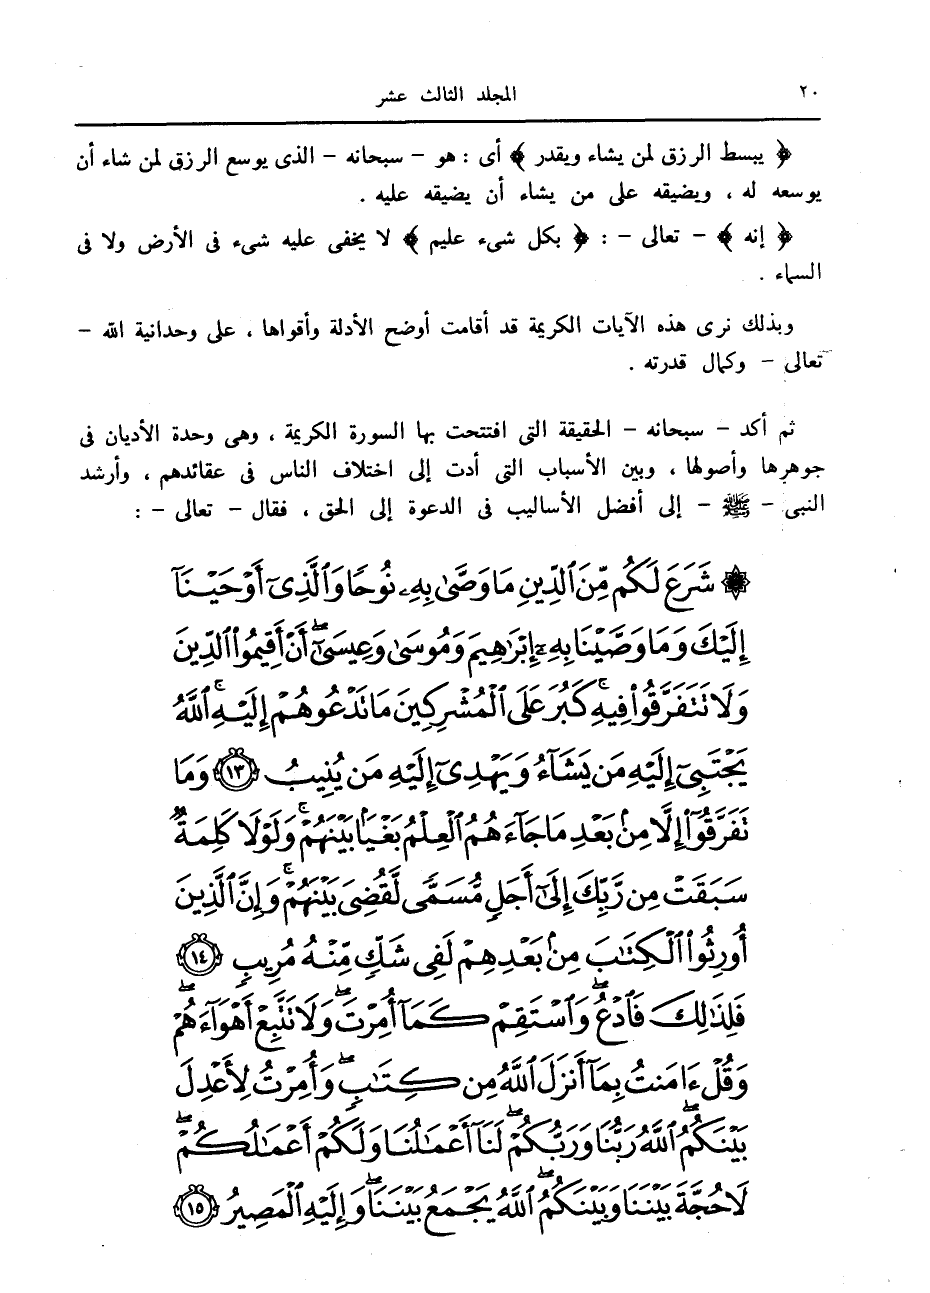 ٢٠ المجلد الثالث عشر
﴿ يبسط الرزق لمن يشاء ويقدر ﴾ أى : هو – سبحانه – الذى يوسع الرزق لمن شاء أن
يوسعه له ، ويضيقه على من يشاء أن يضيقه عليه .
﴿ إنه ﴾ – تعالى – : ﴿ بكل شىء عليم ﴾ لا يخفى عليه شىء فى الأرض ولا فى
السماء .
وبذلك نرى هذه الآيات الكريمة قد أقامت أوضح الأدلة وأقواها ، على وحدانية الله –
تعالى – وكمال قدرته .
ثم أكد – سبحانه – الحقيقة التى افتتحت بها السورة الكريمة ، وهى وحدة الأديان فى
جوهرها وأصولها ، وبين الأسباب التى أدت إلى اختلاف الناس فى عقائدهم ، وأرشد
النبى – ﷺ – إلى أفضل الأساليب فى الدعوة إلى الحق ، فقال – تعالى – :
۞ شَرَعَ لَكُم مِّنَ ٱلدِّينِ مَا وَصَّىٰ بِهِۦ نُوحًا وَٱلَّذِىٓ أَوْحَيْنَآ
إِلَيْكَ وَمَا وَصَّيْنَا بِهِۦٓ إِبْرَٰهِيمَ وَمُوسَىٰ وَعِيسَىٰٓ ۖ أَنْ أَقِيمُوا۟ ٱلدِّينَ
وَلَا تَتَفَرَّقُوا۟ فِيهِ ۚ كَبُرَ عَلَى ٱلْمُشْرِكِينَ مَا تَدْعُوهُمْ إِلَيْهِ ۚ ٱللَّهُ
يَجْتَبِىٓ إِلَيْهِ مَن يَشَآءُ وَيَهْدِىٓ إِلَيْهِ مَن يُنِيبُ ﴿١٣﴾ وَمَا
تَفَرَّقُوٓا۟ إِلَّا مِنۢ بَعْدِ مَا جَآءَهُمُ ٱلْعِلْمُ بَغْيًۢا بَيْنَهُمْ ۚ وَلَوْلَا كَلِمَةٌ
سَبَقَتْ مِن رَّبِّكَ إِلَىٰٓ أَجَلٍ مُّسَمًّى لَّقُضِىَ بَيْنَهُمْ ۚ وَإِنَّ ٱلَّذِينَ
أُورِثُوا۟ ٱلْكِتَٰبَ مِنۢ بَعْدِهِمْ لَفِى شَكٍّ مِّنْهُ مُرِيبٍ ﴿١٤﴾
فَلِذَٰلِكَ فَٱدْعُ ۖ وَٱسْتَقِمْ كَمَآ أُمِرْتَ ۖ وَلَا تَتَّبِعْ أَهْوَآءَهُمْ ۖ
وَقُلْ ءَامَنتُ بِمَآ أَنزَلَ ٱللَّهُ مِن كِتَٰبٍ ۖ وَأُمِرْتُ لِأَعْدِلَ
بَيْنَكُمُ ۖ ٱللَّهُ رَبُّنَا وَرَبُّكُمْ ۖ لَنَآ أَعْمَٰلُنَا وَلَكُمْ أَعْمَٰلُكُمْ ۖ
لَا حُجَّةَ بَيْنَنَا وَبَيْنَكُمُ ۖ ٱللَّهُ يَجْمَعُ بَيْنَنَا ۖ وَإِلَيْهِ ٱلْمَصِيرُ ﴿١٥﴾